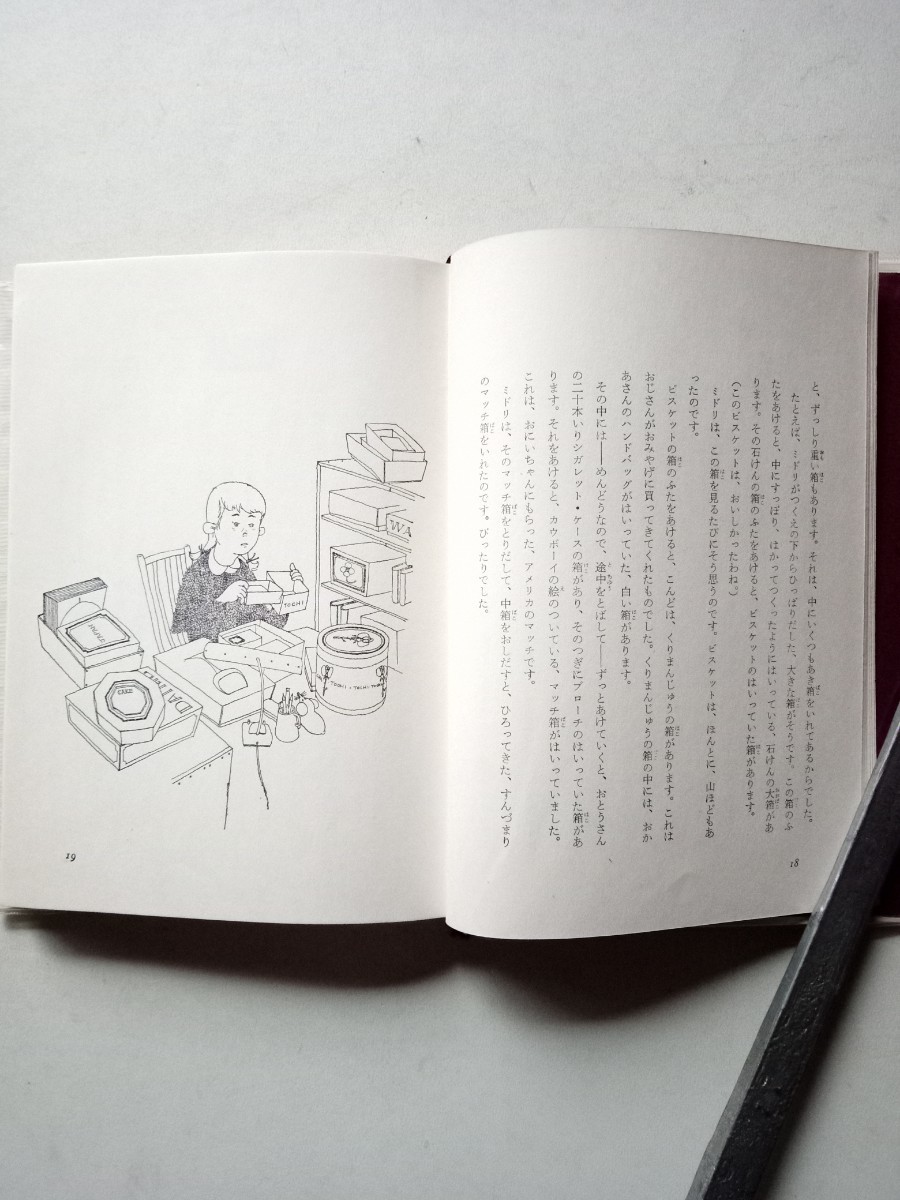 と、ずっしり重い箱もあります。それは、中にいくつもあき箱をいれてあるからでした。
たとえば、ミドリがつくえの下からひっぱりだした、大きな箱がそうです。この箱のふ
たをあけると、中にすっぽり、はかってつくったようにはいっている、石けんの大箱があ
ります。その石けんの箱のふたをあけると、ビスケットのはいっていた箱があります。
(このビスケットは、おいしかったわね。)
ミドリは、この箱を見るたびにそう思うのです。ビスケットは、ほんとに、山ほどもあ
ったのです。
ビスケットの箱のふたをあけると、こんどは、くりまんじゅうの箱があります。これは
おじさんがおみやげに買ってきてくれたものでした。くりまんじゅうの箱の中には、おか
あさんのハンドバッグがはいっていた、白い箱があります。
その中には――めんどうなので、途中をとばして――ずっとあけていくと、おとうさん
の二十本いりシガレット・ケースの箱があり、そのつぎにブローチのはいっていた箱があ
ります。それをあけると、カウボーイの絵のついている、マッチ箱がはいっていました。
これは、おにいちゃんにもらった、アメリカのマッチです。
ミドリは、そのマッチ箱をとりだして、中箱をおしだすと、ひろってきた、すんづまり
のマッチ箱をいれたのです。ぴったりでした。
18
WA
TOCHI
CAKE
19